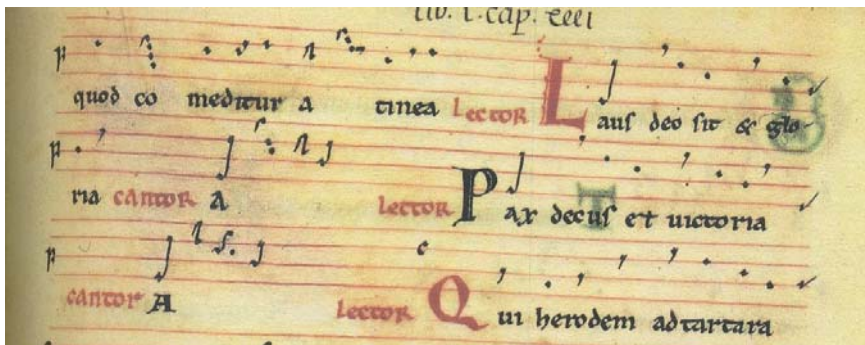 lib. I. cap. xxii
quod co meditur a tinea Lector Laus deo sit & glo-
ria cantor A Lector Pax decus et uictoria
cantor A Lector Qui herodem ad tartara